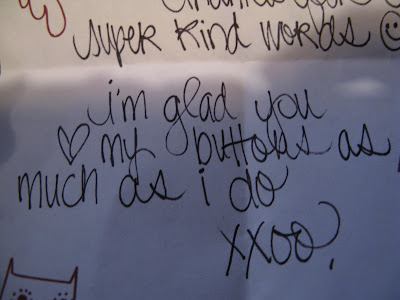 super kind words ☺
i'm glad you
♡ my buttons as
much as i do
xxoo,